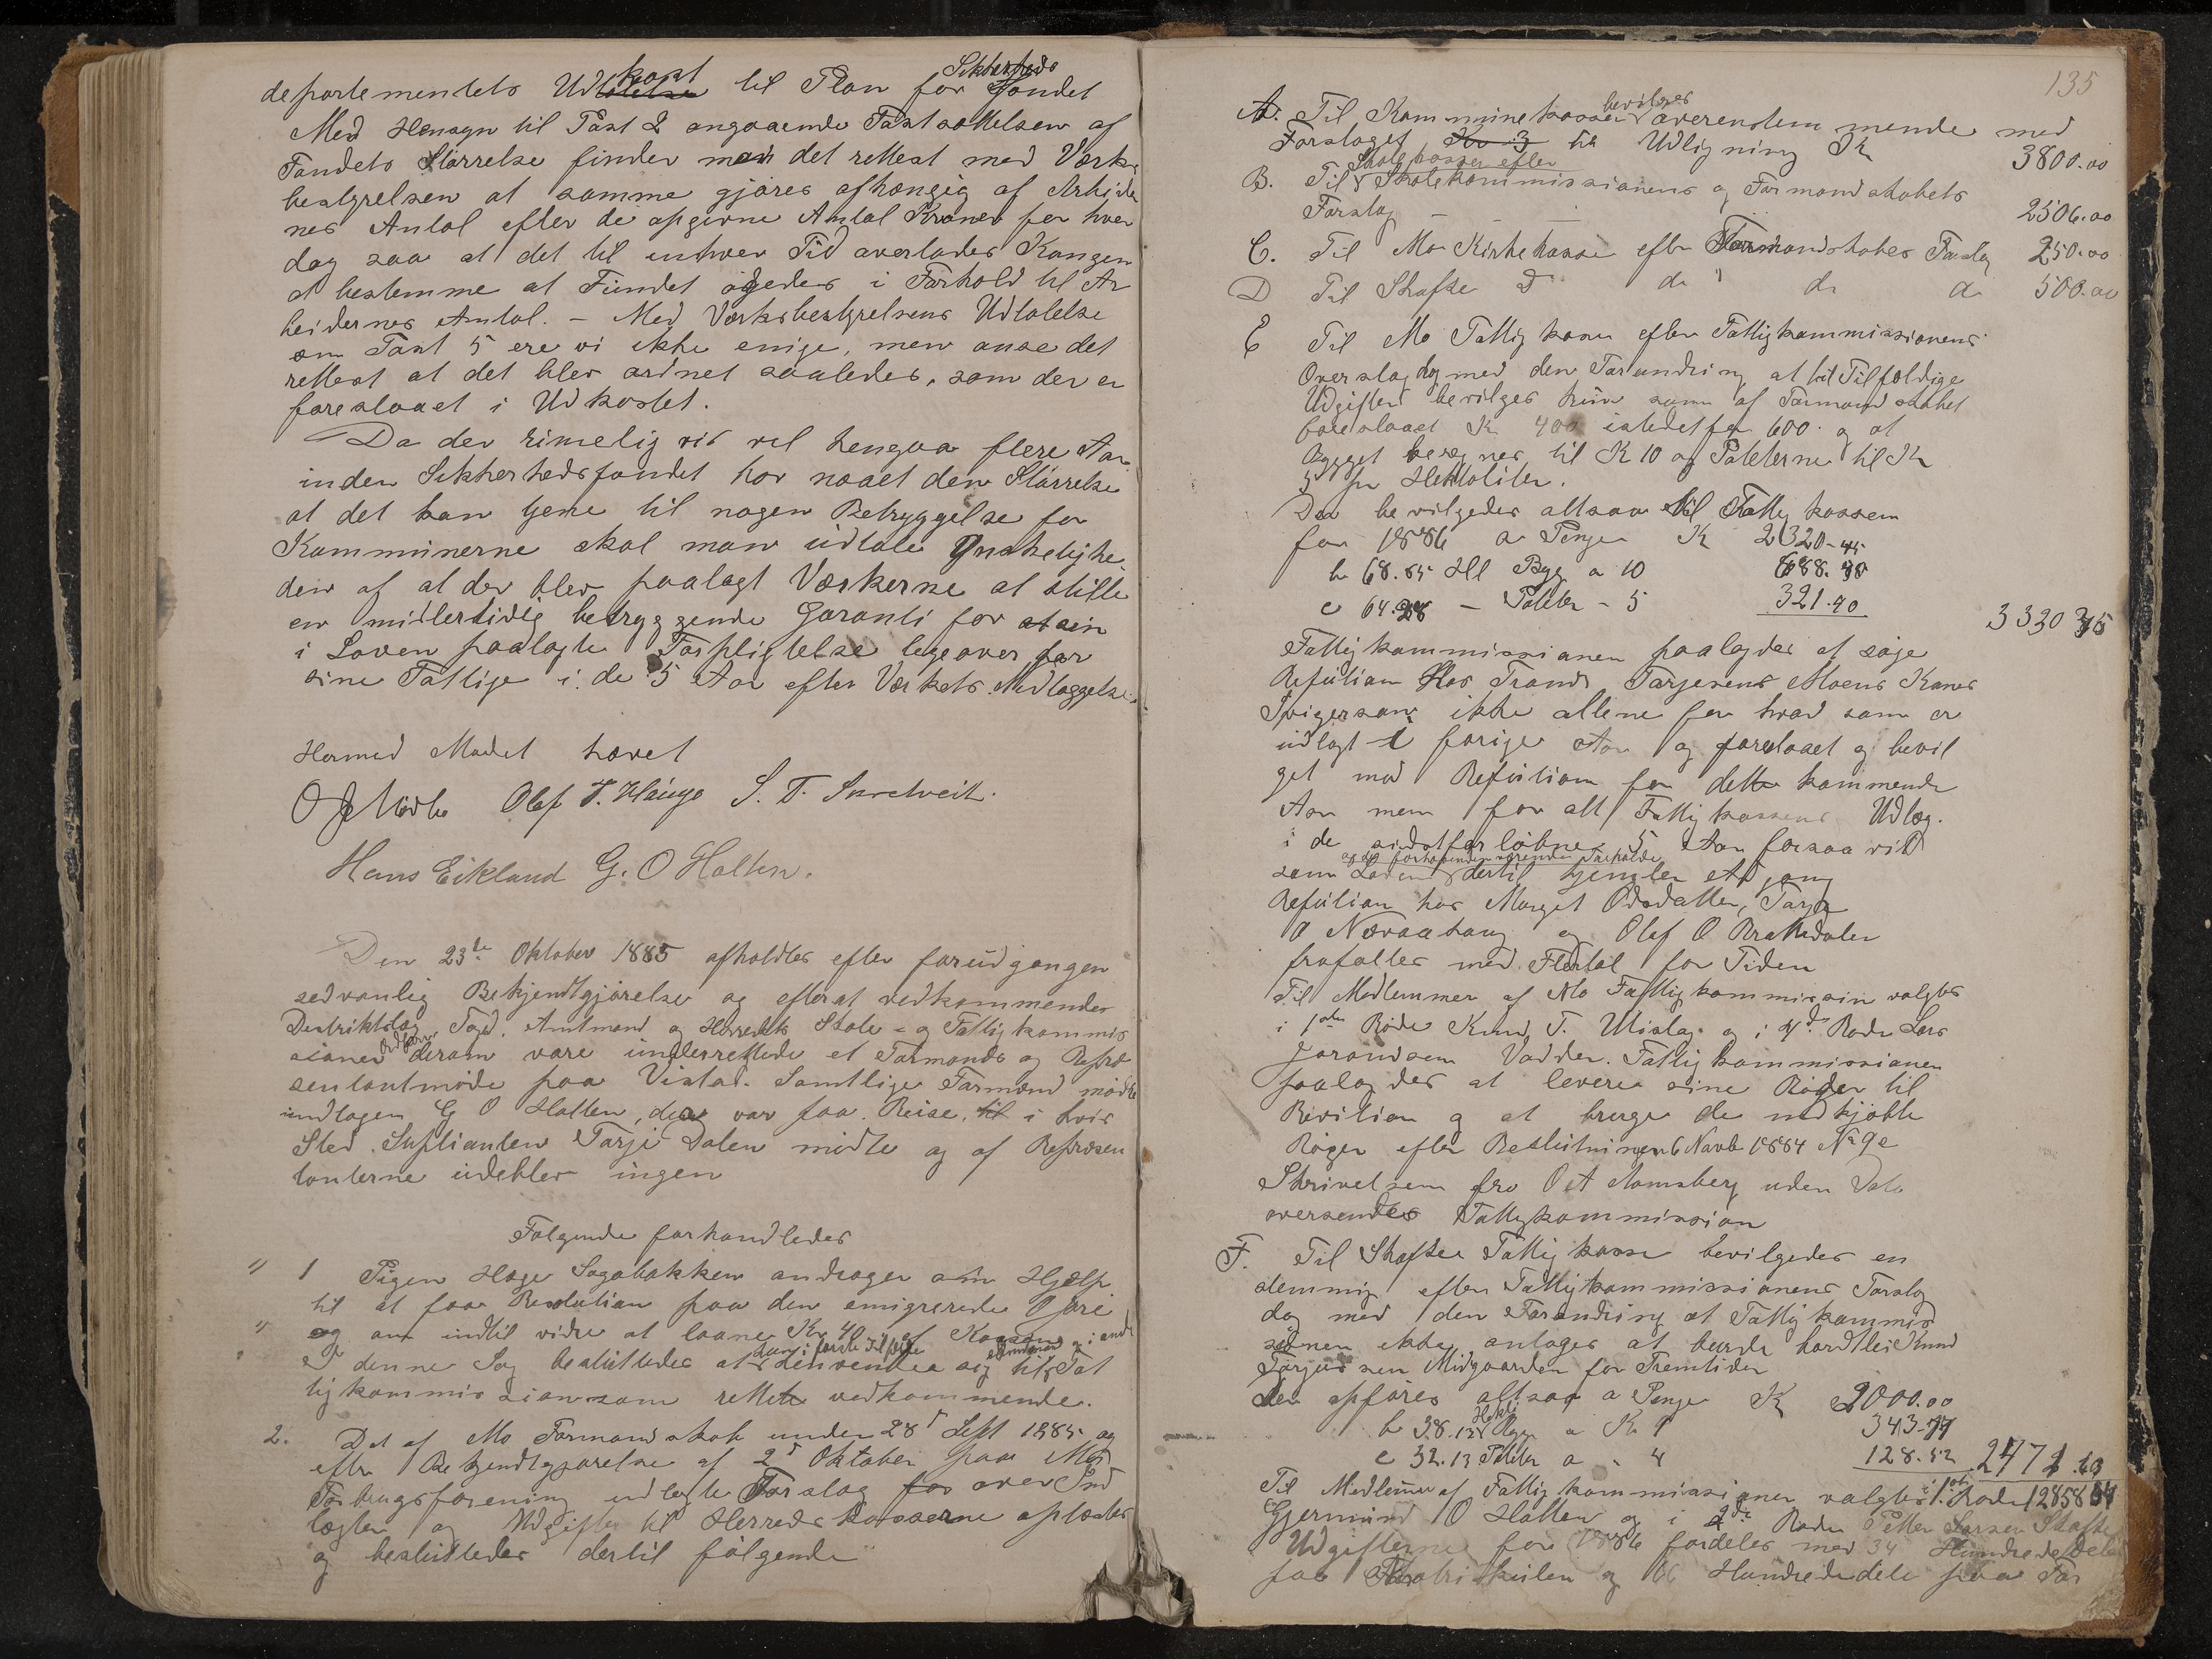 departementets Udkast til Plan for Sikkerhedsfondet
Med Hensyn til Post 2 angaaende Fastsættelsen af
Fondets Størrelse finder man det rettest med Værks
bestyrelsen at samme gjøres afhængig af Arbeider
nes Antal efter de opgivne Antal Kroner for hver
dog saa at det til enhver Tid overlades Kongen
at bestemme at Fondet øgedes i Forhold til Ar
beidernes Antal. – Med Værksbestyrelsens Udtalelse
om Post 5 ere vi ikke enige, men anse det
rettest at det blev ordnet saaledes, som der er
foreslaaet i Udkastet.
Da der rimelig vis vil hengaa flere Aar
inden Sikkerhedsfondet har naaet den Størrelse
at det kan tjene til nogen Betryggelse for
Kommunerne skal man udtale Ønskelighe
den af at der blev paalagt Værkerne at stille
en midlertidig betryggende Garanti for sin
i Loven paalagte Forpligtelse ligeover for
sine Fattige i de 5 Aar efter Værkets Nedlæggelse.
Hermed Mødet hævet
Olaf T. Hauge S. T. Snretveit.
Hans Eikland G. O Holten.
Den 23de Oktober 1885 afholdtes efter forudgangen
sedvanlig Bekjendtgjørelse og efterat vedkommende
Destriktslæg, Foged, Amtmand og Herredets Skole- og Fattigkommis
sioner derom vare underrettede et Formands og Repræ
sentantmøde paa Vistad. Samtlige Formænd mødte
undtagen G O Holten, der var paa Reise, i hvis
Sted Suplianten Tarje Dalen mødte og af Repræsen
tanterne udeblev ingen
Følgende forhandledes
1 Pigen Hæge Sogabakken andrager om Hjælp
til at faa Resolution paa den emigrerede O
og om indtil vidre at laane Kr 4 af Kassen
I denne Sag besluttedes at henvende sig til Fat
tigkommissionen som rette vedkommende.
2. Det af Mo Formandskab under 28de Sept 1885 og
efter Bekjendtgjørelse af 2de Oktober paa Mo
Forbrugsforening udlagte Forslag over Ind
tægter og Udgifter til Herredskasserne oplæstes
og besluttedes dertil følgende
135
A. Til Kommunekassen bevilges overenstemmende med
Forslaget til Udligning K 3800.00
B. Til Skolekassen efter Skolekommissionens og Formandskabets
Forslag – – – 2506.00
C. Til Mo Kirkekasse efter Formandskabes Forslag 250.00
D Til Skafse D do do do 500.00
E Til Mo Fattigkasse efter Fattigkommissionens
Overslag dog med den Forandring at til Tilfældige
Udgifter bevilges kun som af Formandskabet
foreslaaet K 400 istedetfor 600 og at
Bygget beregnes til K 10 og Poteterne til K
5 pr Hektoliter.
Der bevilgedes altsaa til Fattigkassen
for 1886 a Penge K 2320-45
b 68.85 Hl Byg a 10 688.50
c 64.28 – Poteter - 5 321.40
3330 35
Fattigkommissionen paalagdes at søge
Refusion hos Trond Tarjesens Moens Kones
Svigersøn ikke allene for hvad som er
udlagt i forige Aar og foreslaaet og bevil
get mod Refusion for dette kommende
Aar men for alt Fattigkassens Udlæg
i de sidstforløbne 5 Aar forsaavidt
som Loven og de forhaandenværende Forholde dertil hjemler
Refusion hos Margit Olsdatter, Tarje
O Næraahaug og Olaf O Brattedalen
frafalles med Flertal for Tiden
Til Medlemmer af Mo Fattigkommission valgtes
i 1ste Rode Knud T. Ulislag og i 4de Rode Lars
Joraandsen Vadder. Fattigkommissionen
paalagdes at levere sine Bøger til
Revision og at bruge de indkjøbte
Bøger efter Beslutningen 6 Novb 1884 No 9e
Skrivelsen fra O A Momsberg uden Dato
oversendes Fattigkommission
F. Til Skafse Fattigkasse bevilgedes en
stemmig efter Fattigkommissionens Forslag
dog med den Forandring at Fattigkommis
sionen ikke antages at burde bortleie Knud
Tarjussen Midgaarden for Fremtiden
der opføres altsaa a Penge K 2000.00
b 38.12 Hektl Byg a K 9 343-
c 32.13 Poteter a - 4 128.52 2471.
Til Medlemmer af Fattigkommissionen valgtes i 1ste Rode 12858
Gjermund O Holten og i 2de Rode Petter Larsen Skafse
Udgifterne for 1886 fordeles med 34 Hundrededele
paa Matrikulen og 66 Hundrededele paa For